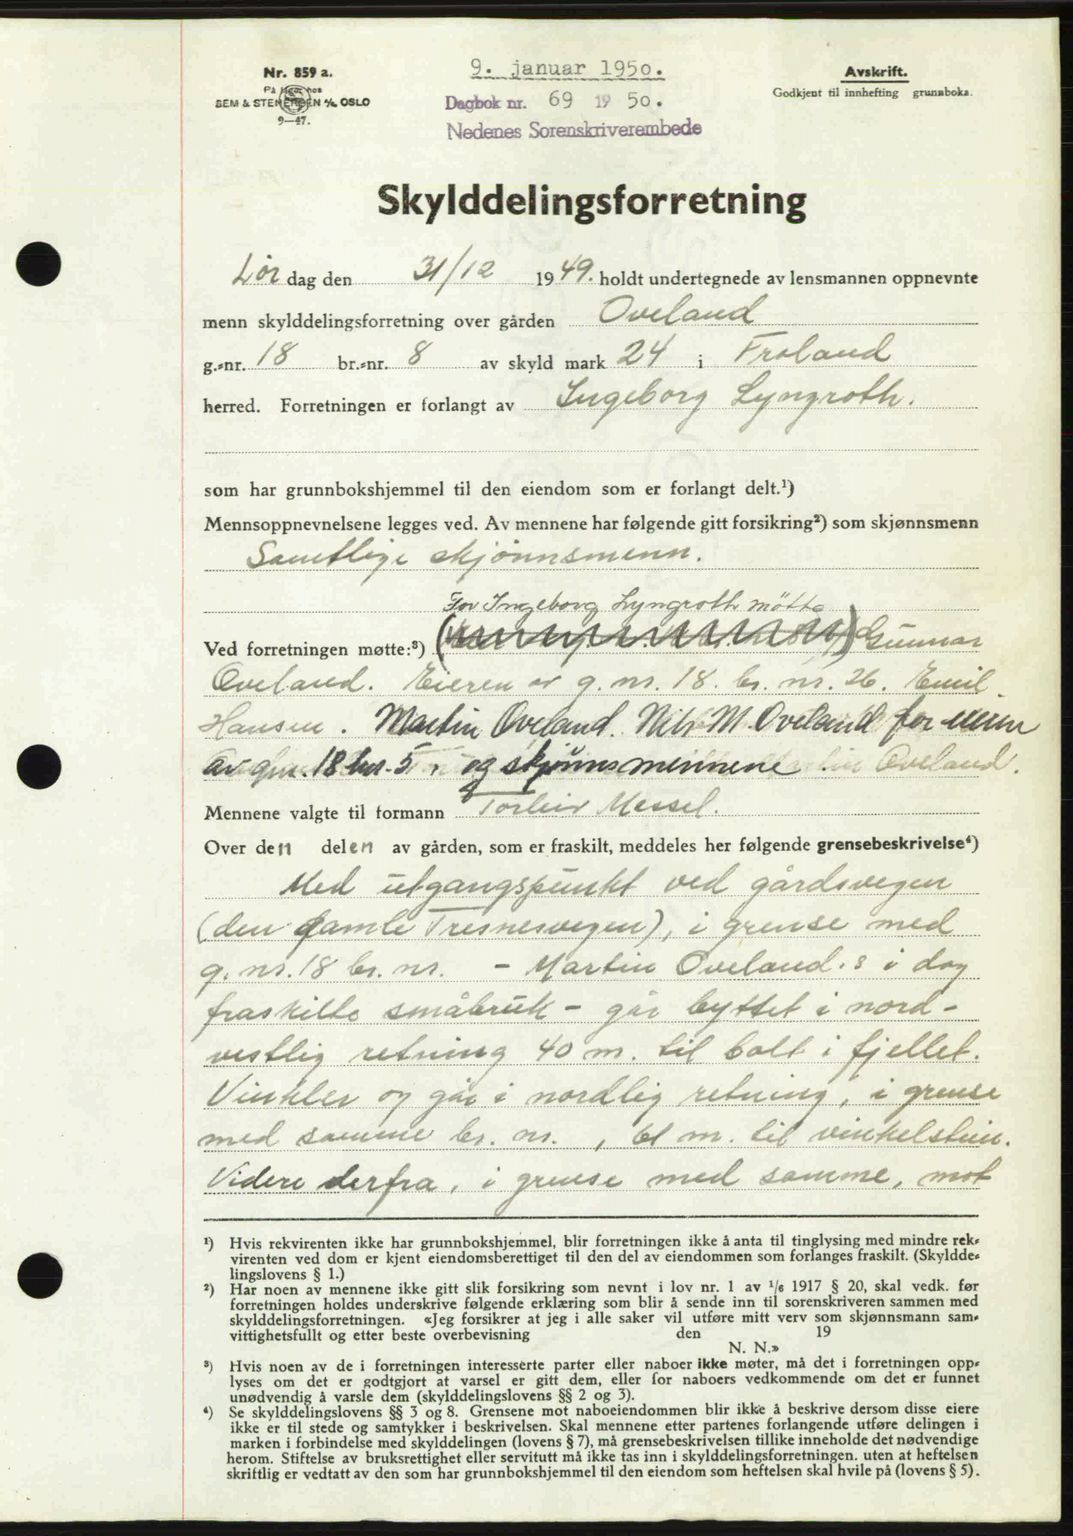 Nr. 859 a.
På lager hos
SEM & STENERSEN A/S OSLO
9—47.
9. januar 1950.
Dagbok nr. 69 1950.
Nedenes Sorenskriverembede
Avskrift.
Godkjent til innhefting grunnboka.
Skylddelingsforretning
Lør dag den 31/12 1949. holdt undertegnede av lensmannen oppnevnte
menn skylddelingsforretning over gården Oveland
g.-nr. 18 br.-nr. 8 av skyld mark 24 i Froland
herred. Forretningen er forlangt av Ingeborg Lyngroth.
som har grunnbokshjemmel til den eiendom som er forlangt delt.¹)
Mennsoppnevnelsene legges ved. Av mennene har følgende gitt forsikring²) som skjønnsmenn
Samtlige skjønnsmenn.
For Ingeborg Lyngroth møtte
Ved forretningen møtte:³) Gunnar
Oveland. Eieren av g. nr. 18. br. nr. 26. Emil
Hansen. Martin Oveland. Nils M. Oveland for
av gnr. 18 bnr. 5, og skjønnsmennene Oveland.
Mennene valgte til formann Torleiv Messel.
Over den delen av gården, som er fraskilt, meddeles her følgende grensebeskrivelse⁴)
Med utgangspunkt ved gårdsvegen
(den gamle Tresnesvegen), i grense med
g. nr. 18 br. nr. - Martin Oveland.s i dag
fraskilte småbruk - går byttet i nord-
vestlig retning 40 m. til bolt i fjellet.
Vinkler og går i nordlig retning, i grense
med samme br. nr. , 61 m. til vinkelstein.
Videre derfra, i grense med samme, mot
¹) Hvis rekvirenten ikke har grunnbokshjemmel, blir forretningen ikke å anta til tinglysing med mindre rek-
virenten ved dom er kjent eiendomsberettiget til den del av eiendommen som forlanges fraskilt. (Skyldde-
lingslovens § 1.)
²) Har noen av mennene ikke gitt slik forsikring som nevnt i lov nr. 1 av 1/6 1917 § 20, skal vedk. før
forretningen holdes underskrive følgende erklæring som blir å sende inn til sorenskriveren sammen med
skylddelingsforretningen. «Jeg forsikrer at jeg i alle saker vil utføre mitt verv som skjønnsmann sam-
vittighetsfullt og etter beste overbevisning den 19
N. N.»
³) Hvis noen av de i forretningen interesserte parter eller naboer ikke møter, må det i forretningen opp-
lyses om det er godtgjort at varsel er gitt dem, eller for naboers vedkommende om det er funnet
unødvendig å varsle dem (skylddelingslovens §§ 2 og 3).
⁴) Se skylddelingslovens §§ 3 og 8. Grensene mot naboeiendommen blir ikke å beskrive dersom disse eiere
ikke er til stede og samtykker i beskrivelsen. Skal mennene etter partenes forlangende utføre delingen i
marken i forbindelse med skylddelingen (lovens § 7), må grensebeskrivelsen tillike inneholde det nødvendige
herom. Stiftelse av bruksrettighet eller servitutt må ikke tas inn i skylddelingsforretningen. uten at heftelsen
skriftlig er vedtatt av den som har grunnbokshjemmel til den eiendom som heftelsen skal hvile på (lovens § 5).